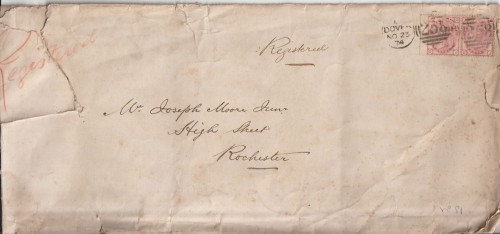 Registered
L
DOVER
NO 23
78
Registered
Mr. Joseph Moore Junr
High Street
Rochester